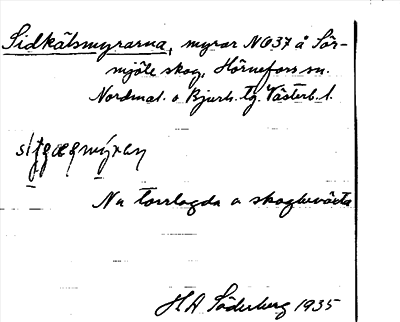 Sidkälsmyrarna, myrar NO37 å Sör-
mjöle skog, Hörnefors sn.
Nordmal. o Bjurh. tg. Västerb. l.
Nu torrlagda o skogbevävta
H A Söderberg 1935